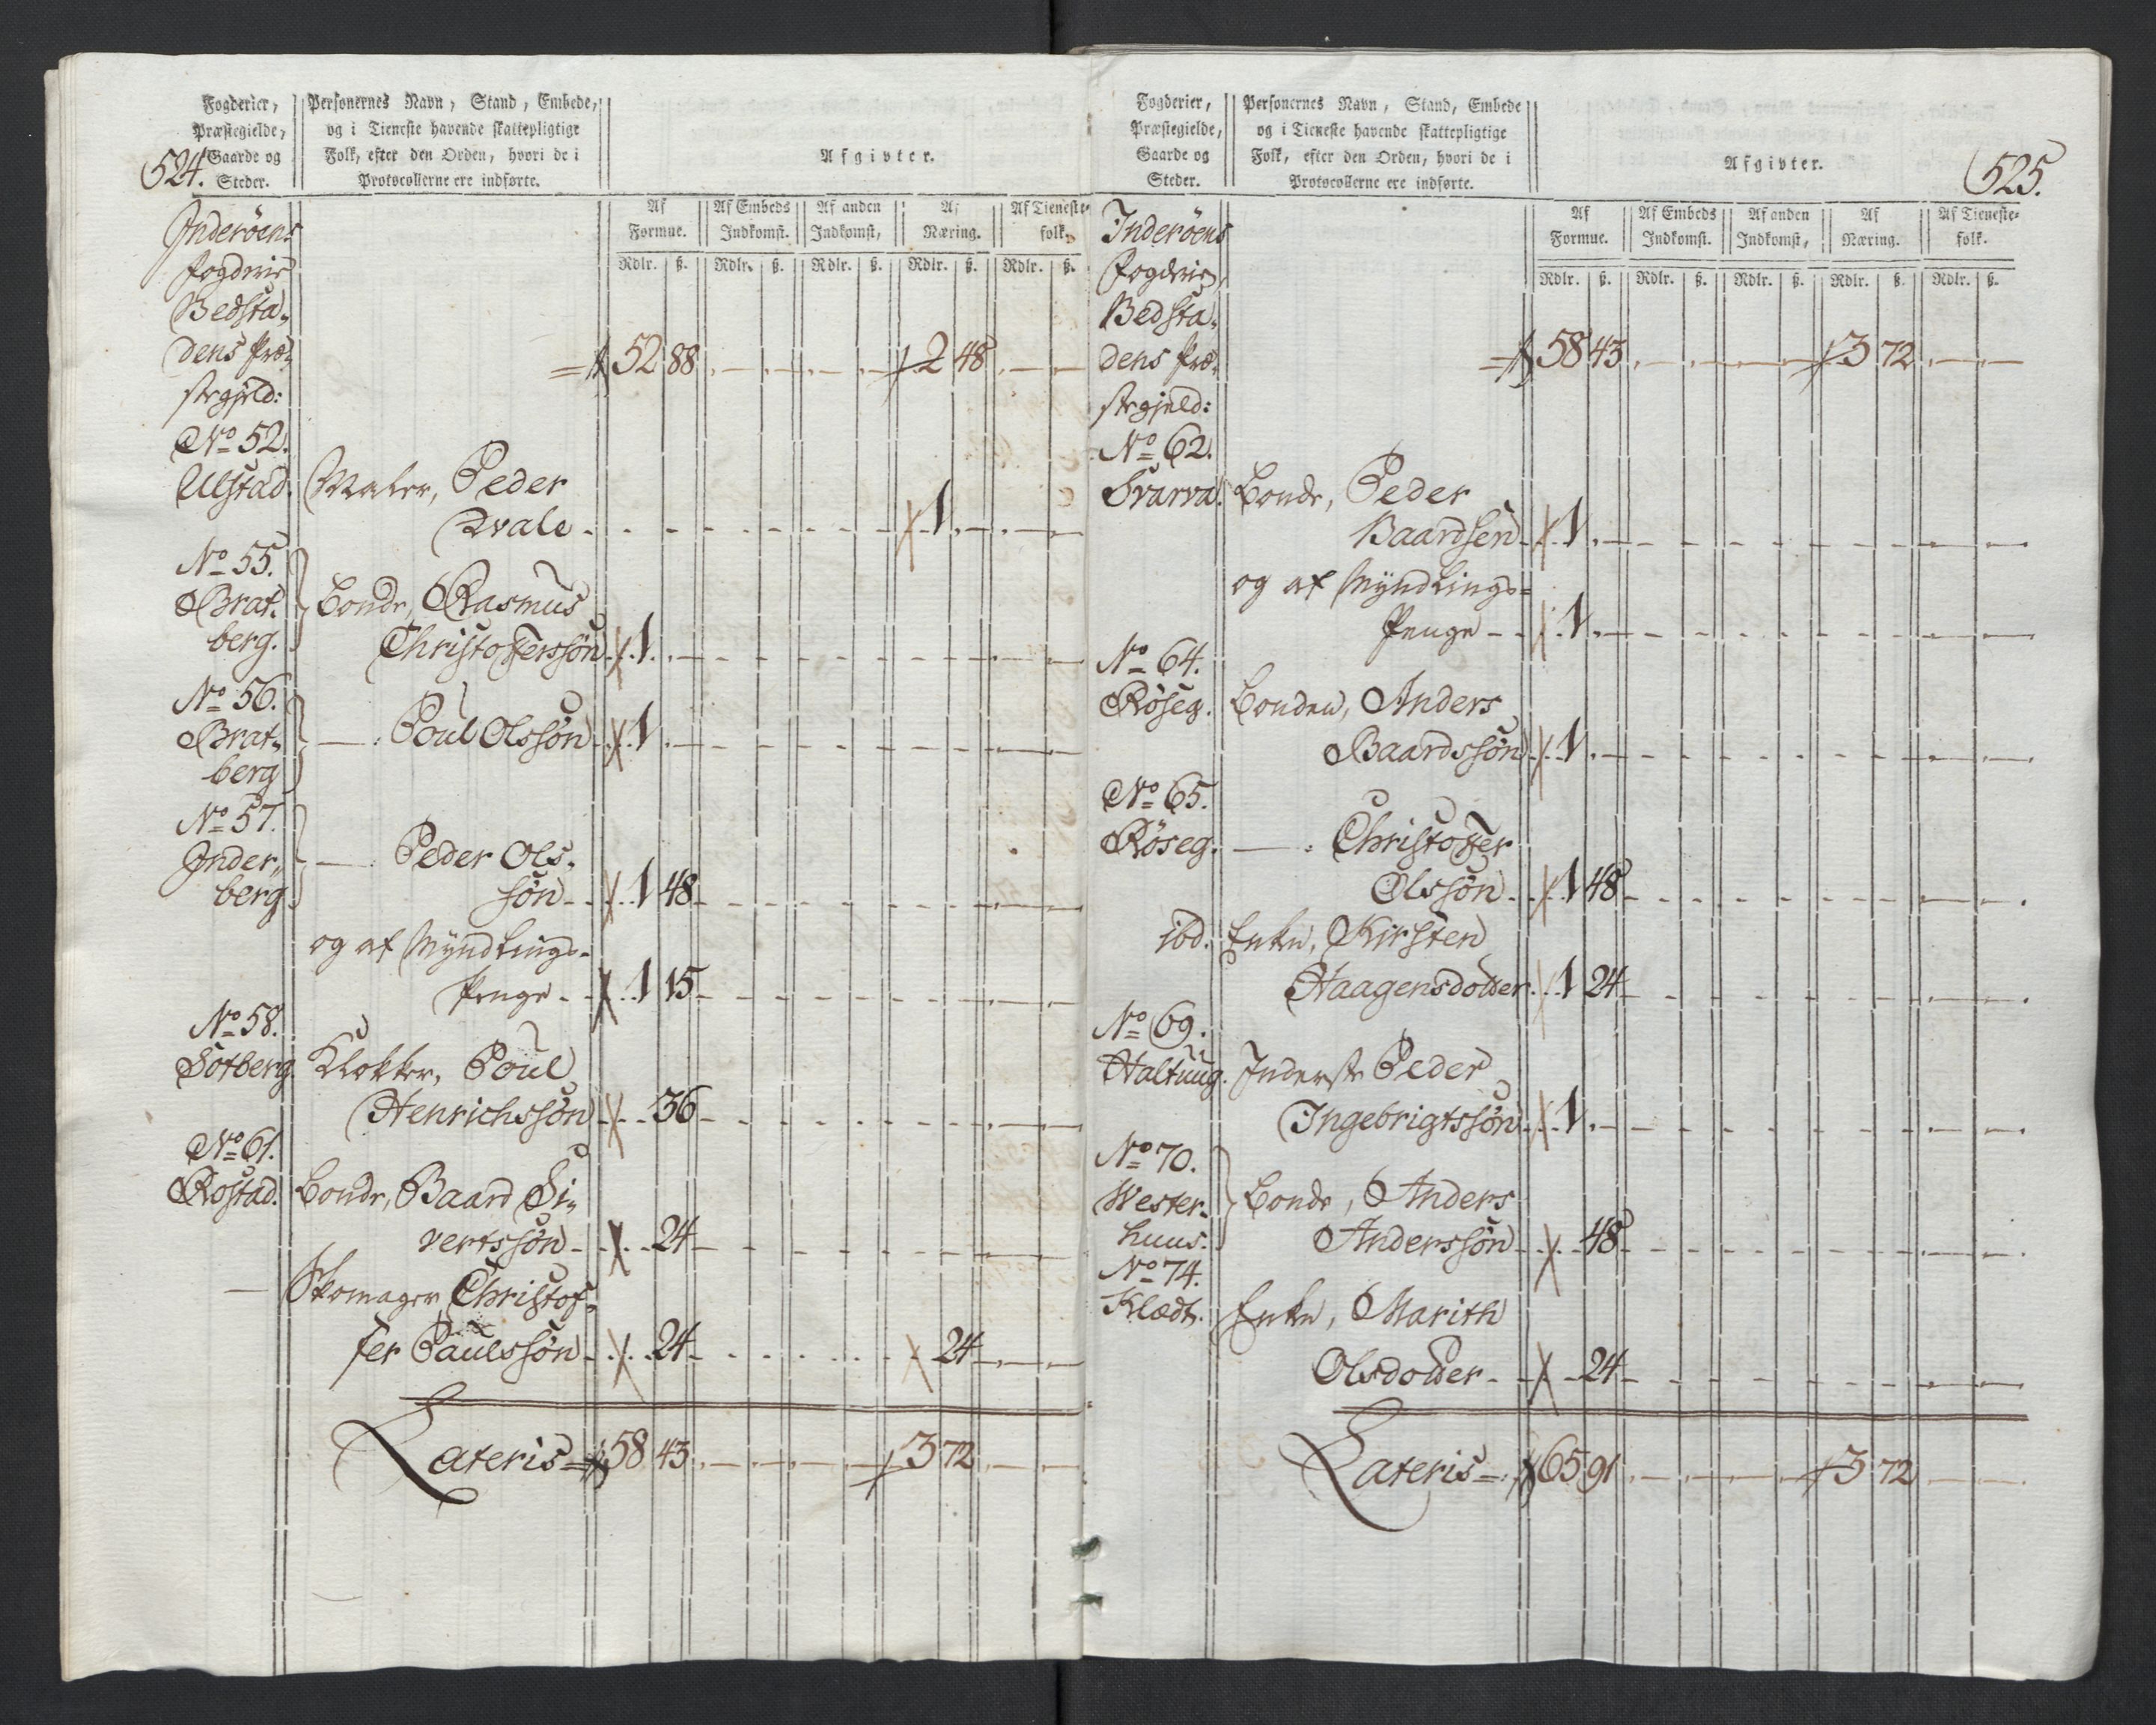 Fogderier,
Præstegielde,
Gaarde og
Steder.
524.
Personernes Navn, Stand, Embede,
og i Tieneste havende skattepligtige
Folk, efter den Orden, hvori de i
Protocollerne ere indførte.
Afgivter.
Af Formue. Af Embeds Indkomst. Af anden Indkomst, Af Næring. Af Tieneste- folk.
Rdlr. ß. Rdlr. ß. Rdlr. ß. Rdlr. ß. Rdlr. ß.
Inderøens
Fogderie
Bedsta-
dens Præ- 52 88 2 48
stegjeld:
No 52.
Ulstad. Maler, Peder
Qvale 1
No 55.
Brat- Bonde, Rasmus
berg. Christofferssøn 1
No 56.
Brat- — : Poul Olssøn 1
berg
No 57.
Inder- — : Peder Ols-
berg søn 1 48
og af Myndlings-
Penge 1 15
No 58.
Sotberg Klokker, Poul
Henrichssøn 36
No 61.
Rostad. Bonde, Baard Si-
vertssøn 24
— Skomager Christof-
fer Paulssøn 24 24
Lateris 58 43 3 72
Fogderier,
Præstegielde,
Gaarde og
Steder.
Personernes Navn, Stand, Embede
og i Tieneste havende skattepligtige
Folk, efter den Orden, hvori de i
Protocollerne ere indførte.
Afgivter.
525.
Af Formue. Af Embeds Indkomst. Af anden Indkomst, Af Næring. Af Tieneste- folk.
Rdlr. ß. Rdlr. ß. Rdlr. ß. Rdlr. ß. Rdlr. ß.
Inderøens
Fogderie,
Bedsta-
dens Præ- 58 43 3 72
stegjeld:
No 62.
Svarva. Bonde, Peder
Baardsen 1
og af Myndlings-
Penge 1
No 64.
Røseg. Bonden, Anders
Baardssøn 1
No 65.
Røseg. — : Christoffer
Olssøn 1 48
ibd. Enke, Kirsten
Haagensdotter 1 24
No 69.
Haltuug. Inderste Peder
Ingebrigtssøn 1
No 70.
Wester- Bonde, Anders
huus. Anderssøn 48
No 74.
Klædt. Enke, Marith
Olsdotter 24
Lateris 65 91 3 72